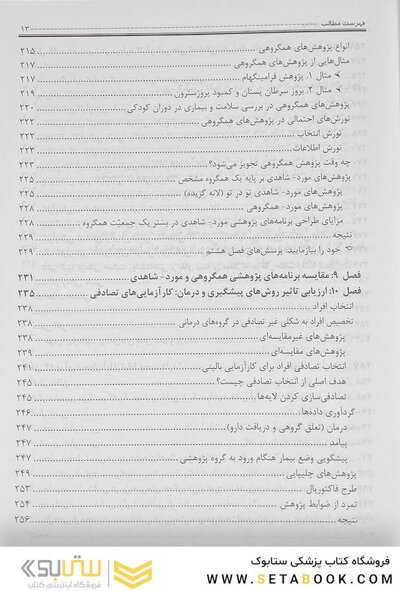 فهرست مطالب ۱۳
انواع پژوهش‌های همگروهی ۲۱۵
مثال‌هایی از پژوهش‌های همگروهی ۲۱۷
مثال ۱. پژوهش فرامینگهام ۲۱۷
مثال ۲. بروز سرطان پستان و کمبود پروژسترون ۲۱۹
پژوهش‌های همگروهی در بررسی سلامت و بیماری در دوران کودکی ۲۲۰
تورش‌های احتمالی در پژوهش‌های همگروهی ۲۲۲
تورش انتخاب ۲۲۲
تورش اطلاعات ۲۲۳
چه وقت پژوهش همگروهی تجویز می‌شود؟ ۲۲۳
پژوهش‌های مورد- شاهدی بر پایه یک همگروه مشخص ۲۲۵
پژوهش‌های مورد- شاهدی تو در تو (لانه گزیده) ۲۲۵
پژوهش‌های مورد- همگروهی ۲۲۸
مزایای طراحی برنامه‌های پژوهشی مورد- شاهدی در بستر یک جمعیّت همگروه ۲۲۸
نتیجه ۲۲۹
خود را بیازمایید: پرسش‌های فصل هشتم ۲۲۹
فصل ۹: مقایسه برنامه‌های پژوهشی همگروهی و مورد- شاهدی ۲۳۱
فصل ۱۰: ارزیابی تاثیر روش‌های پیشگیری و درمان: کارآزمایی‌های تصادفی ۲۳۵
انتخاب افراد ۲۳۸
تخصیص افراد به شکلی غیر تصادفی در گروه‌های درمانی ۲۳۸
پژوهش‌های غیرمقایسه‌ای ۲۳۸
پژوهش‌های مقایسه‌ای ۲۳۹
انتخاب تصادفی افراد برای کارآزمایی بالینی ۲۴۱
هدف اصلی از انتخاب تصادفی چیست؟ ۲۴۵
تصادفی‌سازی کردن لایه‌ها ۲۴۵
گردآوری داده‌ها ۲۴۶
درمان (تعلق گروهی و دریافت دارو) ۲۴۷
پیامد ۲۴۷
پیشگویی وضع بیمار هنگام ورود به گروه پژوهشی ۲۴۷
پژوهش‌های چلیپایی ۲۴۹
طرح فاکتوریال ۲۵۳
تمرد از ضوابط پژوهش ۲۵۴
نتیجه ۲۵۶
فروشگاه کتاب پزشکی ستابوک
WWW.SETABOOK.COM
ستابوک
فروشگاه اینترنتی کتاب